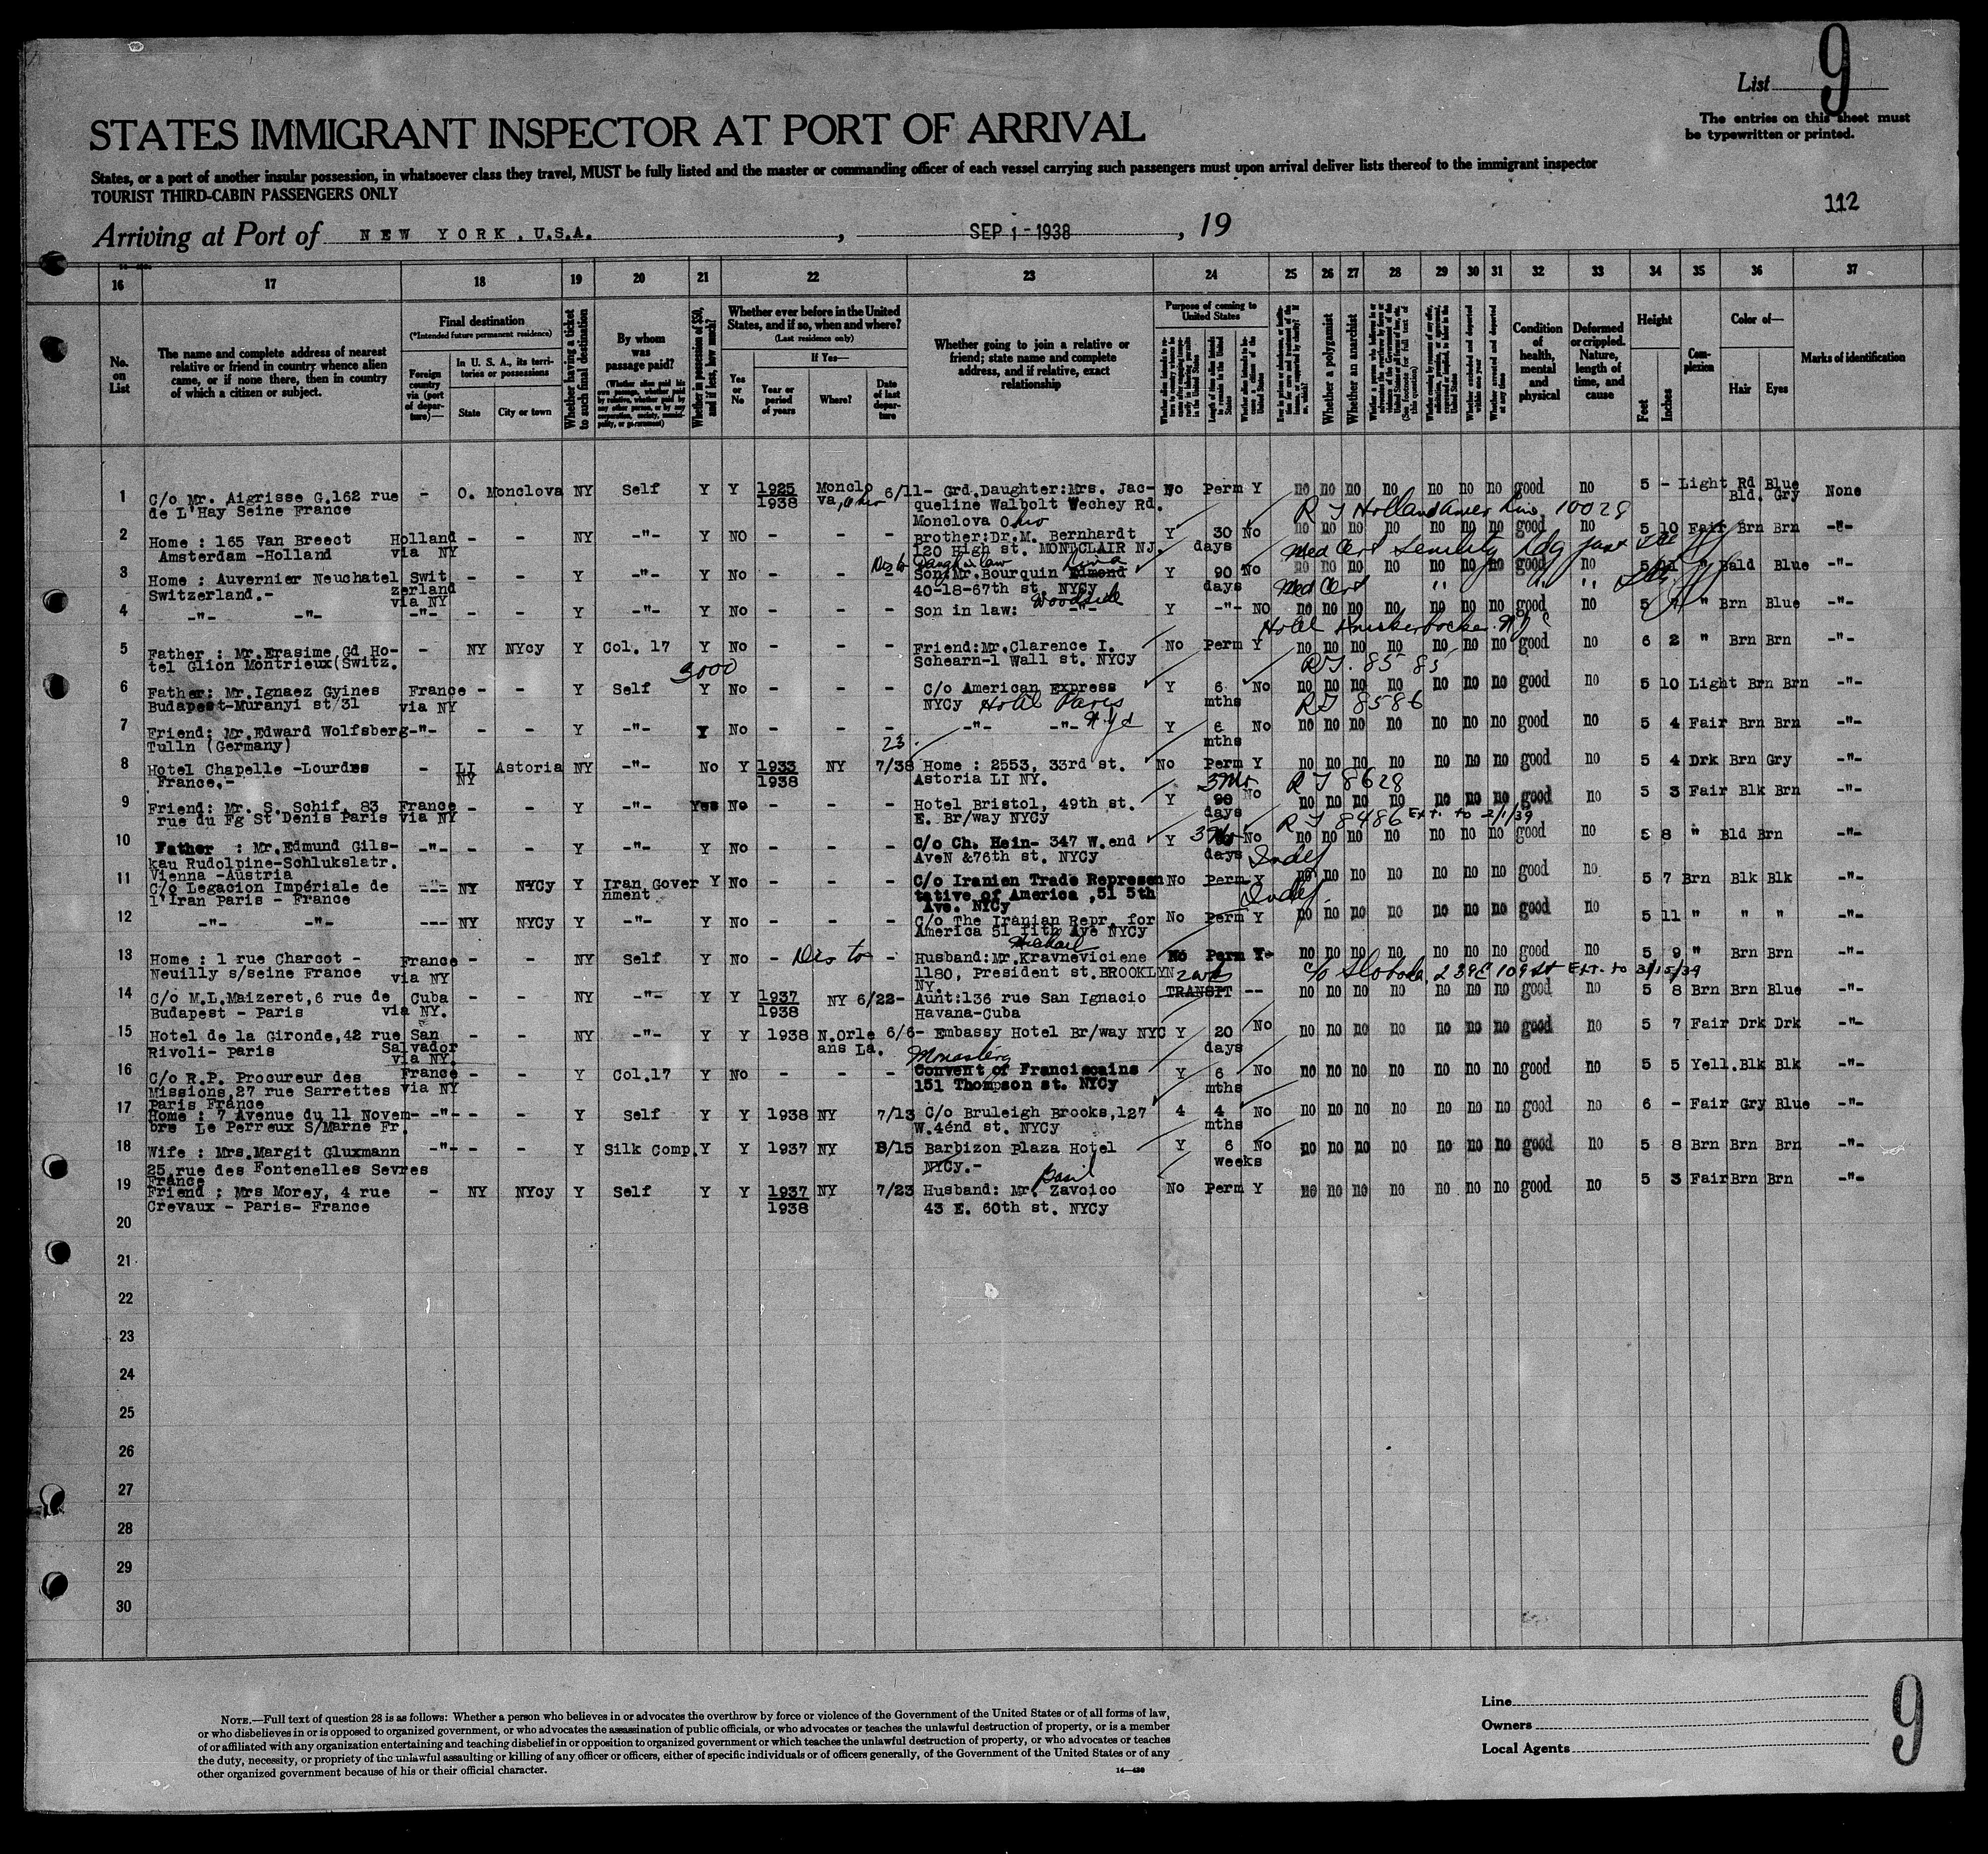 List 9
The entries on this sheet must
be typewritten or printed.
STATES IMMIGRANT INSPECTOR AT PORT OF ARRIVAL
States, or a port of another insular possession, in whatsoever class they travel, MUST be fully listed and the master or commanding officer of each vessel carrying such passengers must upon arrival deliver lists thereof to the immigrant inspector
TOURIST THIRD-CABIN PASSENGERS ONLY
112
Arriving at Port of NEW YORK. U.S.A. , SEP 1 - 1938 , 19
16 17 18 19 20 21 22 23 24 25 26 27 28 29 30 31 32 33 34 35 36 37
No. on List
The name and complete address of nearest
relative or friend in country whence alien
came, or if none there, then in country
of which a citizen or subject.
Final destination
(*Intended future permanent residence)
Foreign country via (port of departure)—
In U. S. A., its territories or possessions
State
City or town
Whether having a ticket to such final destination
By whom was passage paid?
Whether in possession of $50, and if less, how much?
Whether ever before in the United
States, and if so, when and where?
(Last residence only)
Yes or No
If Yes—
Year or period of years
Where?
Date of last departure
Whether going to join a relative or
friend; state name and complete
address, and if relative, exact
relationship
Purpose of coming to United States
Whether a polygamist
Whether an anarchist
Condition of health, mental and physical
Deformed or crippled. Nature, length of time, and cause
Height
Feet
Inches
Complexion
Color of—
Hair
Eyes
Marks of identification
1 C/o Mr. Aigrisse G.162 rue - O. Monclova NY Self Y Y 1925 Monclo 6/11- Grd.Daughter:Mrs. Jac- No Perm Y no no no no no no no good no 5 - Light Rd Blue None
de L'Hay Seine France 1938 va, Ohio queline Walbolt Wechey Rd. Bld. Gry
Monclova Ohio R T Holland Amer Line 10028
2 Home : 165 Van Breect Holland - - NY -"- Y NO - - - Brother:Dr.M. Bernhardt Y 30 No no no no no no no no good no 5 10 Fair Brn Brn -"-
Amsterdam -Holland via NY 120 High st. MONTCLAIR NJ. days Med Cert Senility
3 Home : Auvernier Neuchatel Swit - - Y -"- Y No - - - Son:Mr.Bourquin Elmond Y 90 No no no no no no no no good no 5 " Bald Blue -"-
Switzerland.- zerland 40-18-67th st. NYCy days Med Cert "
via NY Woodside
4 -"- -"- -"- - - Y -"- Y No - - - Son in law: -"- Y -"- NO no no no no no no no good no 5 " Brn Blue -"-
Hotel Knickerbocker
5 Father : Mr.Erasime Gd Ho- - NY NYCy Y Col. 17 Y No - - - Friend:Mr.Clarence I. No Perm Y no no no no no no no good no 6 2 " Brn Brn -"-
tel Glion Montrieux(Switz. 3000 Schearn-1 Wall st. NYCy R T. 85 85
6 Father: Mr.Ignaez Gyines France - - Y Self Y No - - - C/o American Express Y 6 No no no no no no no no good no 5 10 Light Brn Brn -"-
Budapest-Muranyi st/31 via NY NYCy Hotel Paris mths R T 8586
7 Friend: Mr.Edward Wolfsberg -"- - - Y -"- Y No - - - -"- -"- Y 6 No no no no no no no no good no 5 4 Fair Brn Brn -"-
Tulln (Germany) 23. mths
8 Hotel Chapelle -Lourdes - LI Astoria NY -"- No Y 1933 NY 7/38 Home : 2553, 33rd st. No Perm Y no no no no no no no good no 5 4 Drk Brn Gry -"-
France.- NY 1938 Astoria LI NY. R T 8628
9 Friend: Mr. S. Schif, 83 France - - Y -"- Yes No - - - Hotel Bristol, 49th st. Y 90 No no no no no no no no good no 5 3 Fair Blk Brn -"-
rue du Fg St Denis Paris via NY E. Br/way NYCy days R T 8486 EXT. to 2/1/39
10 Father : Mr.Edmund Gils- -"- - - Y -"- Y No - - - C/o Ch. Hein- 347 W.end Y No no no no no no no no good no 5 8 " Bld Brn -"-
kau Rudolpine-Schlukslatr. AveN &76th st. NYCy days Indef
Vienna -Austria
11 C/o Legacion Impériale de --- NY NYCy Y Iran Gover Y No - - - C/o Iranien Trade Represen No Perm Y no no no no no no no good no 5 7 Brn Blk Blk -"-
l'Iran Paris - France nment tative of America ,51 5th Indef
Ave. NYCy
12 -"- -"- --- NY NYCy Y -"- Y No - - - C/o The Iranian Repr. for No Perm Y no no no no no no no good no 5 11 " " " -"-
America 51 fith Ave NYCy
Michael
13 Home : 1 rue Charcot - France - - NY Self Y No - - Husband:Mr.Kravneviciene No Perm Y no no no no no no no good no 5 9 " Brn Brn -"-
Neuilly s/seine France via NY 1180, President st.BROOKLYN c/o Sloboda, 239 E 109 St EXT. to 3/15/39
NY.
14 C/o M.L.Maizeret,6 rue de Cuba - - NY -"- Y Y 1937 NY 6/22- Aunt:136 rue San Ignacio TRANSIT -- no no no no no no no good no 5 8 Brn Brn Blue -"-
Budapest - Paris via NY. 1938 Havana-Cuba
15 Hotel de la Gironde,42 rue San - - NY -"- Y Y 1938 N.Orle 6/6- Embassy Hotel Br/way NYC Y 20 No no no no no no no no good no 5 7 Fair Drk Drk -"-
Rivoli- Paris Salvador ans La. days
via NY. Monastery
16 C/o R.P. Procureur des France - - Y Col.17 Y No - - - Convent of Franciscains Y 6 No no no no no no no no good no 5 5 Yell.Blk Blk -"-
Missions,27 rue Sarrettes via NY 151 Thompson st. NYCy mths
Paris France
17 Home : 7 Avenue du 11 Novem- -"- - - Y Self Y Y 1938 NY 7/13 C/o Bruleigh Brooks,127 4 4 No no no no no no no no good no 6 - Fair Gry Blue -"-
bre Le Perreux S/Marne Fr. W.4énd st. NYCy mths
18 Wife : Mrs.Margit Gluxmann -"- - - Y Silk Comp. Y Y 1937 NY 8/15 Barbizon Plaza Hotel Y 6 No no no no no no no no good no 5 8 Brn Brn Brn -"-
25,rue des Fontenelles Sevres NYCy.- weeks
France Basil
19 Friend : Mrs Morey, 4 rue - NY NYCy Y Self Y Y 1937 NY 7/23 Husband: Mr. Zavoico No Perm Y no no no no no no no good no 5 3 Fair Brn Brn -"-
Crevaux - Paris- France 1938 43 E. 60th st. NYCy
20
21
22
23
24
25
26
27
28
29
30
NOTE.—Full text of question 28 is as follows: Whether a person who believes in or advocates the overthrow by force or violence of the Government of the United States or of all forms of law,
or who disbelieves in or is opposed to organized government, or who advocates the assassination of public officials, or who advocates or teaches the unlawful destruction of property, or is a member
of or affiliated with any organization entertaining and teaching disbelief in or opposition to organized government or which teaches the unlawful destruction of property, or who advocates or teaches
the duty, necessity, or propriety of the unlawful assaulting or killing of any officer or officers, either of specific individuals or of officers generally, of the Government of the United States or of any
other organized government because of his or their official character.
14—430
Line
Owners
Local Agents
9